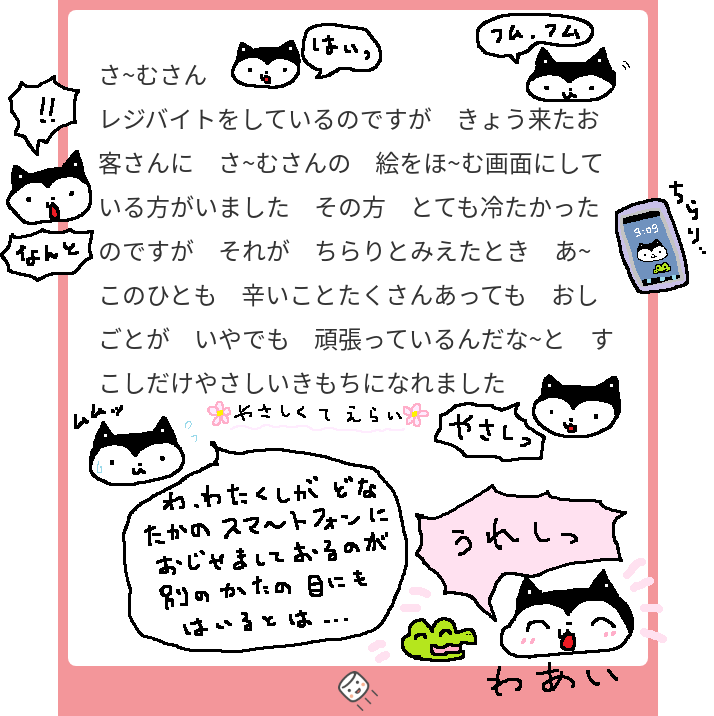 さ~むさん
はいっ
フム、フム
レジバイトをしているのですが　きょう来たお
!!
客さんに　さ~むさんの　絵をほ~む画面にして
いる方がいました　その方　とても冷たかった
ちらり..
9:09
なんと
のですが　それが　ちらりとみえたとき　あ~
このひとも　辛いことたくさんあっても　おし
ごとが　いやでも　頑張っているんだな~と　す
こしだけやさしいきもちになれました
ムムッ
やさしくてえらい
やさしっ
わ、わたくしが どな
たかの スマ〜トフォンに
おじゃましておるのが
別の かたの 目にも
はいるとは...
うれしっ
わあい